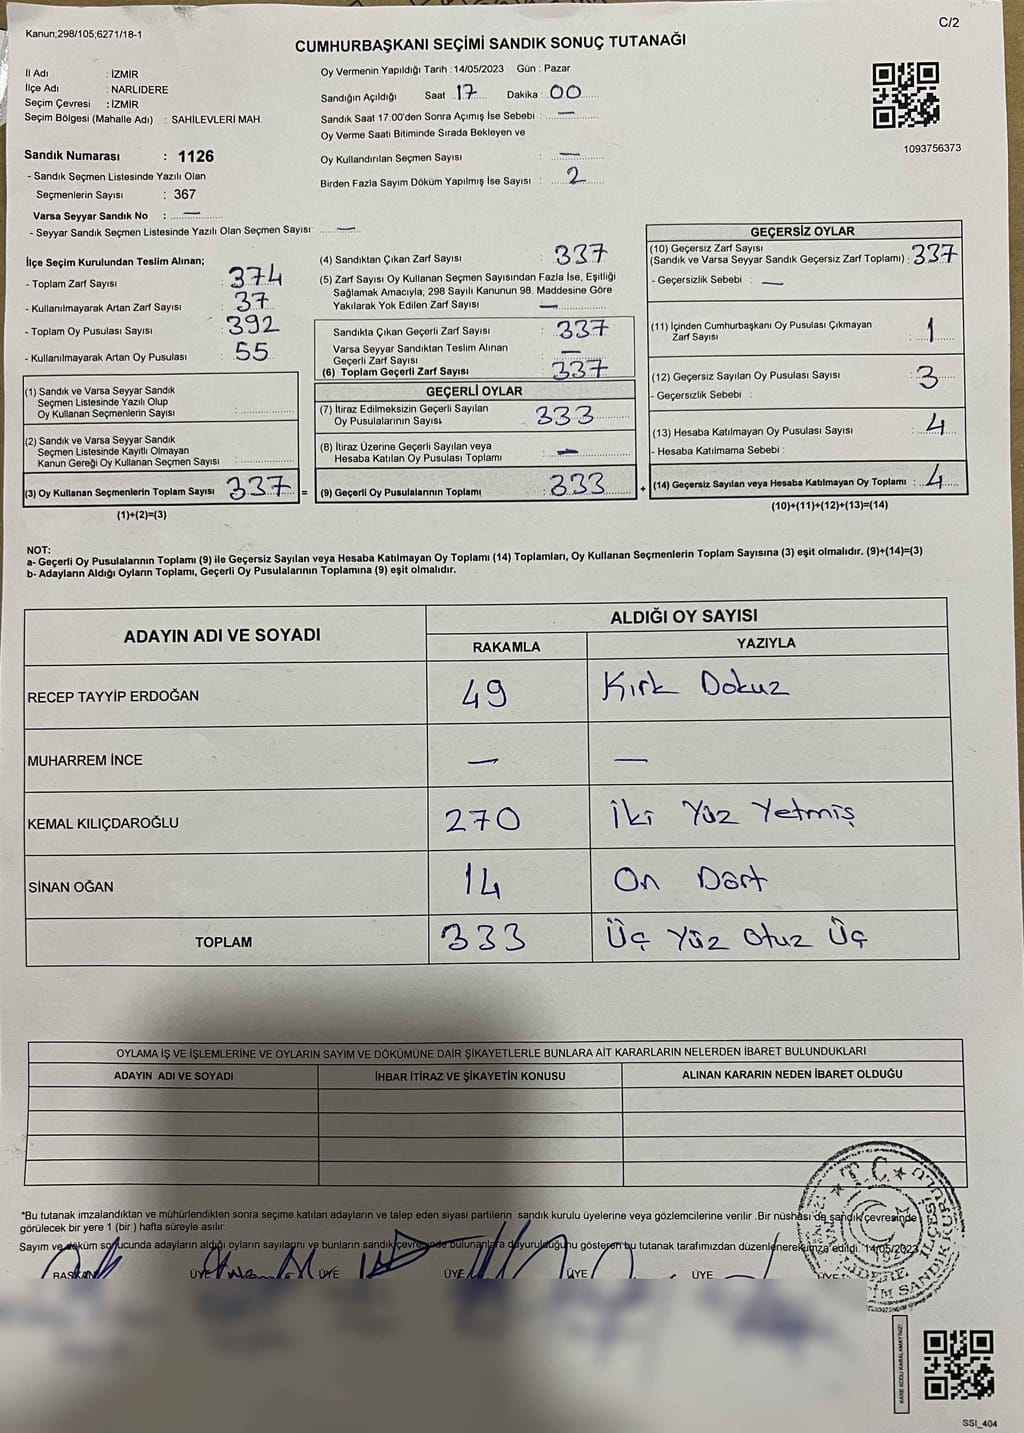 Kanun;298/105;6271/18-1
C/2
CUMHURBAŞKANI SEÇİMİ SANDIK SONUÇ TUTANAĞI
İl Adı : İZMİR
İlçe Adı : NARLIDERE
Seçim Çevresi : İZMİR
Seçim Bölgesi (Mahalle Adı) : SAHİLEVLERİ MAH.
Sandık Numarası : 1126
- Sandık Seçmen Listesinde Yazılı Olan
Seçmenlerin Sayısı : 367
Varsa Seyyar Sandık No : —
- Seyyar Sandık Seçmen Listesinde Yazılı Olan Seçmen Sayısı: —
Oy Vermenin Yapıldığı Tarih : 14/05/2023 Gün : Pazar
Sandığın Açıldığı Saat 17 Dakika : 00
Sandık Saat 17:00'den Sonra Açımış İse Sebebi : —
Oy Verme Saati Bitiminde Sırada Bekleyen ve
Oy Kullandırılan Seçmen Sayısı : —
Birden Fazla Sayım Döküm Yapılmış İse Sayısı : 2
1093756373
İlçe Seçim Kurulundan Teslim Alınan;
- Toplam Zarf Sayısı : 374
- Kullanılmayarak Artan Zarf Sayısı : 37
- Toplam Oy Pusulası Sayısı : 392
- Kullanılmayarak Artan Oy Pusulası : 55
(1) Sandık ve Varsa Seyyar Sandık
Seçmen Listesinde Yazılı Olup
Oy Kullanan Seçmenlerin Sayısı :
(2) Sandık ve Varsa Seyyar Sandık
Seçmen Listesinde Kayıtlı Olmayan
Kanun Gereği Oy Kullanan Seçmen Sayısı :
(3) Oy Kullanan Seçmenlerin Toplam Sayısı 337 =
(1)+(2)=(3)
(4) Sandıktan Çıkan Zarf Sayısı : 337
(5) Zarf Sayısı Oy Kullanan Seçmen Sayısından Fazla İse, Eşitliği
Sağlamak Amacıyla, 298 Sayılı Kanunun 98. Maddesine Göre
Yakılarak Yok Edilen Zarf Sayısı : —
Sandıkta Çıkan Geçerli Zarf Sayısı : 337
Varsa Seyyar Sandıktan Teslim Alınan
Geçerli Zarf Sayısı : —
(6) Toplam Geçerli Zarf Sayısı : 337
GEÇERLİ OYLAR
(7) İtiraz Edilmeksizin Geçerli Sayılan
Oy Pusulalarının Sayısı : 333
(8) İtiraz Üzerine Geçerli Sayılan veya
Hesaba Katılan Oy Pusulası Toplamı : —
(9) Geçerli Oy Pusulalarının Toplamı : 333 +
GEÇERSİZ OYLAR
(10) Geçersiz Zarf Sayısı
(Sandık ve Varsa Seyyar Sandık Geçersiz Zarf Toplamı) : 337
- Geçersizlik Sebebi : —
(11) İçinden Cumhurbaşkanı Oy Pusulası Çıkmayan
Zarf Sayısı : 1
(12) Geçersiz Sayılan Oy Pusulası Sayısı : 3
- Geçersizlik Sebebi :
(13) Hesaba Katılmayan Oy Pusulası Sayısı : 4
- Hesaba Katılmama Sebebi :
(14) Geçersiz Sayılan veya Hesaba Katılmayan Oy Toplamı : 4
(10)+(11)+(12)+(13)=(14)
NOT:
a- Geçerli Oy Pusulalarının Toplamı (9) ile Geçersiz Sayılan veya Hesaba Katılmayan Oy Toplamı (14) Toplamları, Oy Kullanan Seçmenlerin Toplam Sayısına (3) eşit olmalıdır. (9)+(14)=(3)
b- Adayların Aldığı Oyların Toplamı, Geçerli Oy Pusulalarının Toplamına (9) eşit olmalıdır.
ADAYIN ADI VE SOYADI ALDIĞI OY SAYISI
RAKAMLA YAZIYLA
RECEP TAYYİP ERDOĞAN 49 Kırk Dokuz
MUHARREM İNCE — —
KEMAL KILIÇDAROĞLU 270 İki Yüz Yetmiş
SİNAN OĞAN 14 On Dört
TOPLAM 333 Üç Yüz Otuz Üç
OYLAMA İŞ VE İŞLEMLERİNE VE OYLARIN SAYIM VE DÖKÜMÜNE DAİR ŞİKAYETLERLE BUNLARA AİT KARARLARIN NELERDEN İBARET BULUNDUKLARI
ADAYIN ADI VE SOYADI İHBAR İTİRAZ VE ŞİKAYETİN KONUSU ALINAN KARARIN NEDEN İBARET OLDUĞU
*Bu tutanak imzalandıktan ve mühürlendikten sonra seçime katılan adayların ve talep eden siyasi partilerin sandık kurulu üyelerine veya gözlemcilerine verilir .Bir nüshası da sandık çevresinde
görülecek bir yere 1 (bir ) hafta süreyle asılır.
Sayım ve döküm sonucunda adayların aldığı oyların sayılarını ve bunların sandık çevresinde bulunanlara duyurulduğunu gösteren bu tutanak tarafımızdan düzenlenerek imza edildi. 14/05/2023
BAŞKAN ÜYE ÜYE ÜYE ÜYE ÜYE ÜYE
T.C.
KARE KODU KARALAMAYINIZ!
SSI_404